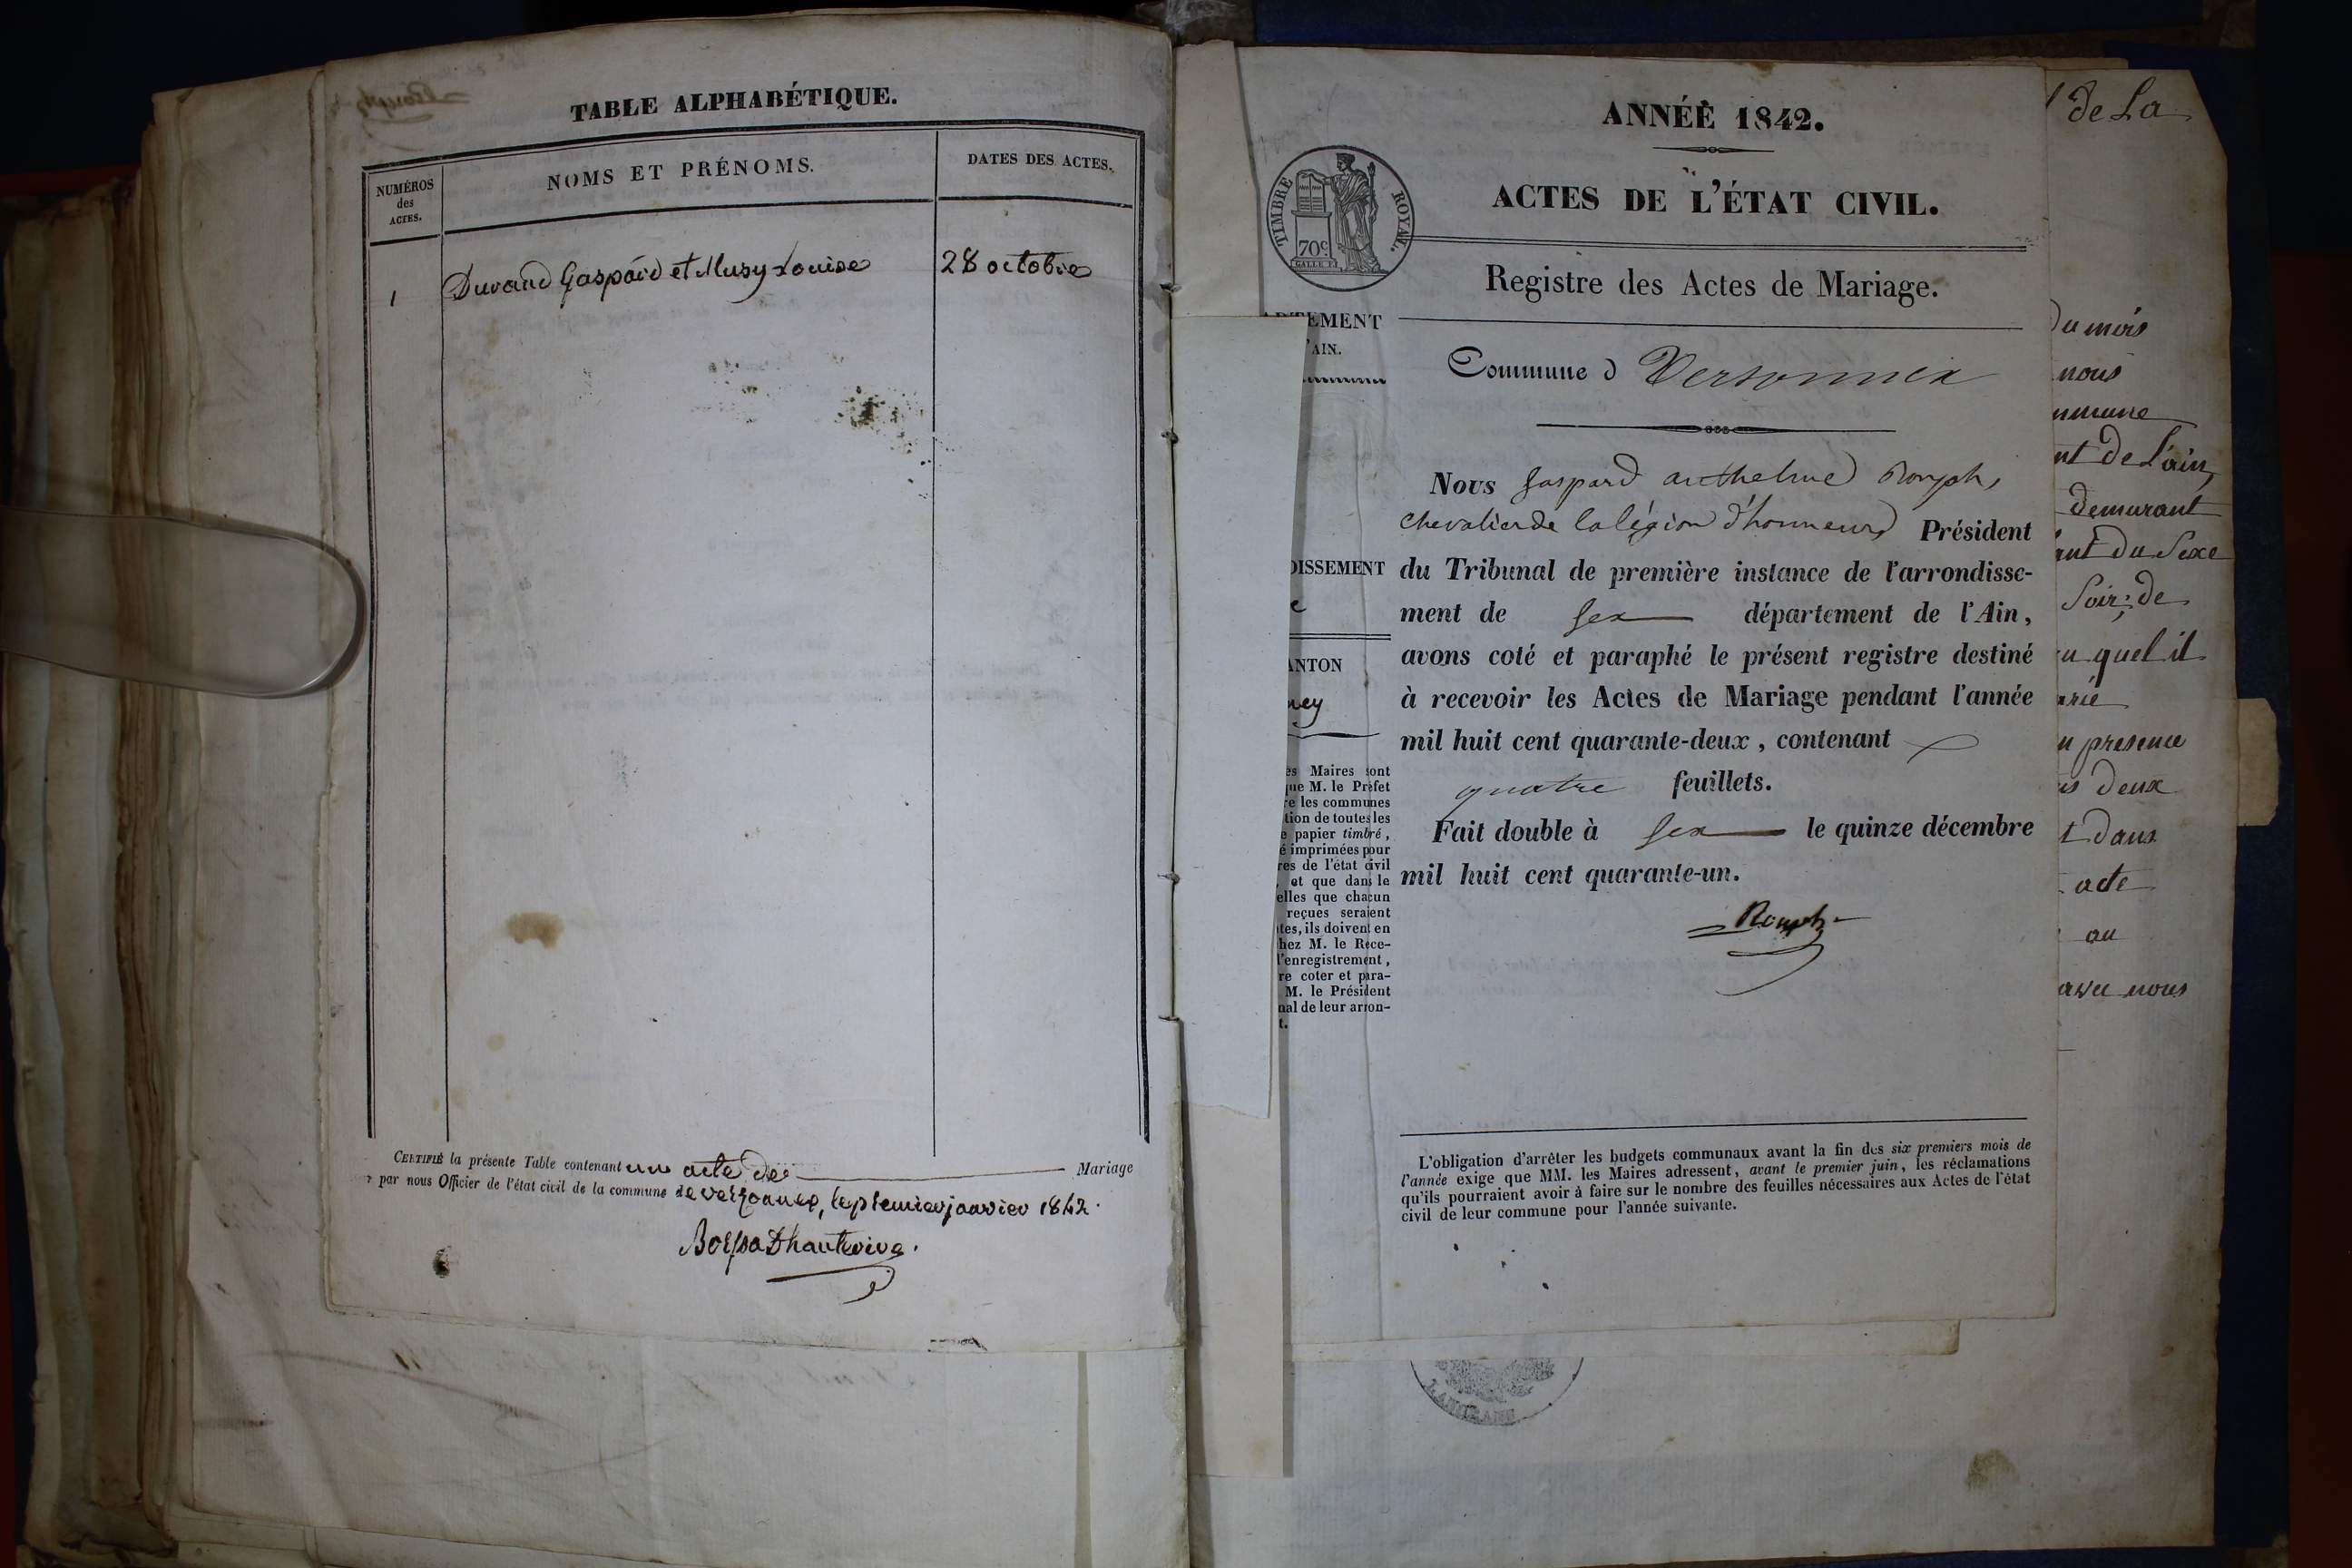 TABLE ALPHABÉTIQUE.
NUMÉROS
des
ACTES.
NOMS ET PRÉNOMS.
DATES DES ACTES.
1
Durand Gaspard et Musy Louise
28 octobre
CERTIFIÉ la présente Table contenant un acte de Mariage
par nous Officier de l'état civil de la commune de versonnex, le premier janvier 1842.
ANNÉE 1842.
ACTES DE L'ÉTAT CIVIL.
TIMBRE ROYAL.
70c
Registre des Actes de Mariage.
EMENT
'AIN.
Commune d Versonnex
Nous Gaspard anthelme Rouph,
chevalier de la légion d'honneur Président
DISSEMENT
du Tribunal de première instance de l'arrondisse-
ment de Gex département de l'Ain,
ANTON
avons coté et paraphé le présent registre destiné
ney
à recevoir les Actes de Mariage pendant l'année
mil huit cent quarante-deux, contenant
quatre feuillets.
Fait double à Gex le quinze décembre
mil huit cent quarante-un.
Rouph
es Maires sont
que M. le Préfet
re les communes
tion de toutes les
e papier timbré,
é imprimées pour
res de l'état civil
, et que dans le
elles que chacun
reçues seraient
tes, ils doivent en
hez M. le Rece-
l'enregistrement,
re coter et para-
M. le Président
nal de leur arron-
t.
L'obligation d'arrêter les budgets communaux avant la fin des six premiers mois de
l'année exige que MM. les Maires adressent, avant le premier juin, les réclamations
qu'ils pourraient avoir à faire sur le nombre des feuilles nécessaires aux Actes de l'état
civil de leur commune pour l'année suivante.
de La
du mois
nous
mmune
nt de l'ain,
demurant
ant du Sexe
Soir; de
u quel il
arié
n presence
s deux
t dans
acte
au
avec nous